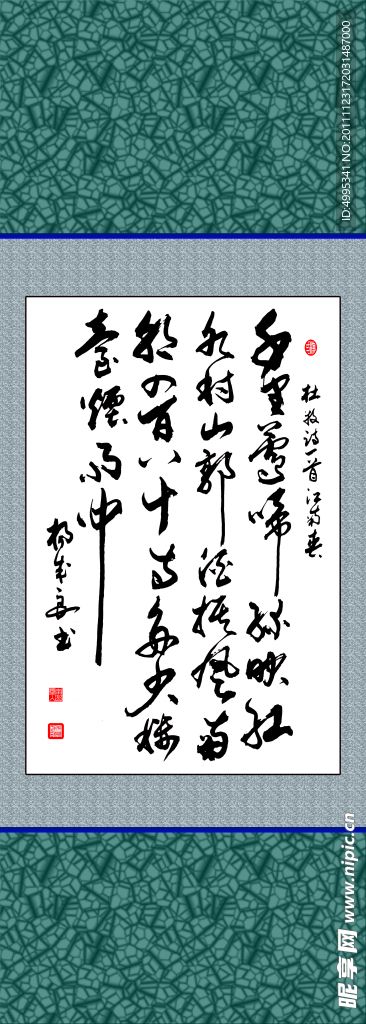 杜牧诗一首江南春
千里鶯啼绿映红
水村山郭酒旗风南
朝四百八十寺多少楼
臺煙雨中
书
ID:4995341 NO:20111123172031487000
昵享网 www.nipic.cn